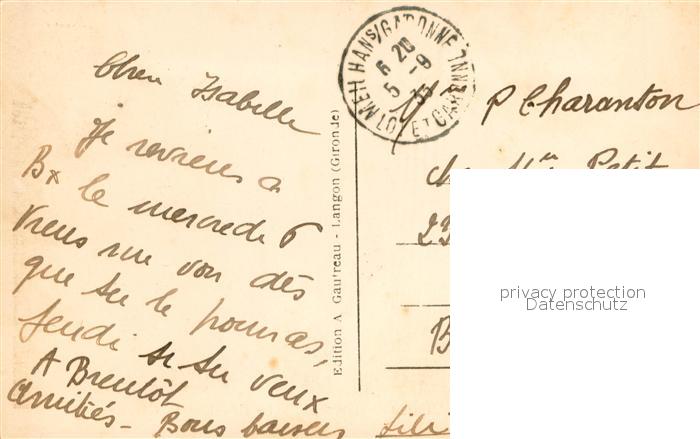 Chère Isabelle
Je reviens a
Bx le mercredi 6
Viens me voir dès
que tu le pourras,
Jeudi si tu veux
A Bientôt
Amitiés - Bons baisers
Edition A. Gautreau - Langon (Gironde)
MEILHANS/GARONNE
LOT ET GAR
6 20
5 -9
P Charanton
Petit
privacy protection
Datenschutz